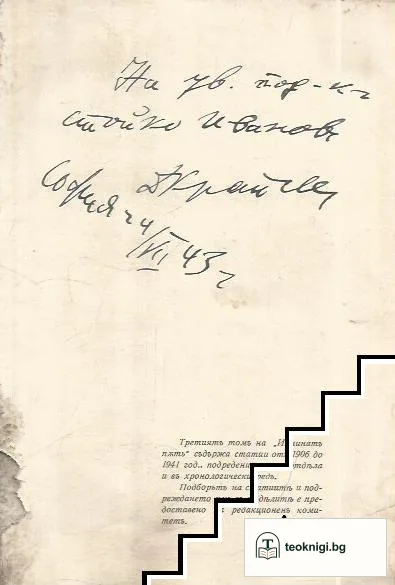 На ув. под-къ
Стойко Иванов
ДКрайчев
София 24
VII 43 г
Третиятъ томъ на „И инатъ
пѫть“ съдържа статии отъ 1906 до
1941 год., подредени тдѣла
и въ хронологически редъ.
Подборътъ на статиитѣ и под-
реждането дѣлитѣ е пре-
доставено редакционенъ коми-
тетъ.
teoknigi.bg